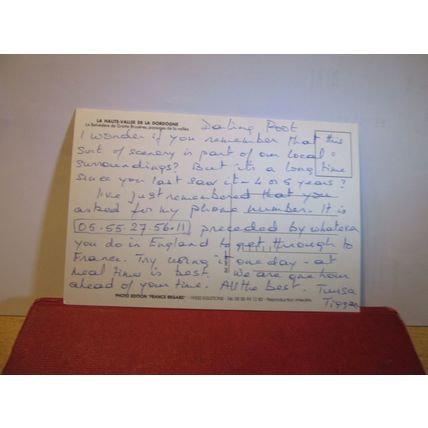 LA HAUTE-VALLEE DE LA DORDOGNE
Le Belvédère de Gratte Bruyères, paysages de la vallée
Darling Poot
I wonder if you remember that this
sort of scenery is part of our local
surroundings? But it's a long time
since you last saw it - 4 or 5 years?
I've just remembered that you
asked for my phone number. It is
05-55-27-56-11 preceded by whatever
you do in England to get through to
France. Try using it one day - at
meal time is best. We are one hour
ahead of your time. All the best.
PHOTO EDITION "FRANCE REGARD" - 19300 EGLETONS - Tél. 05 55 93 12 92 - Reproduction interdite.